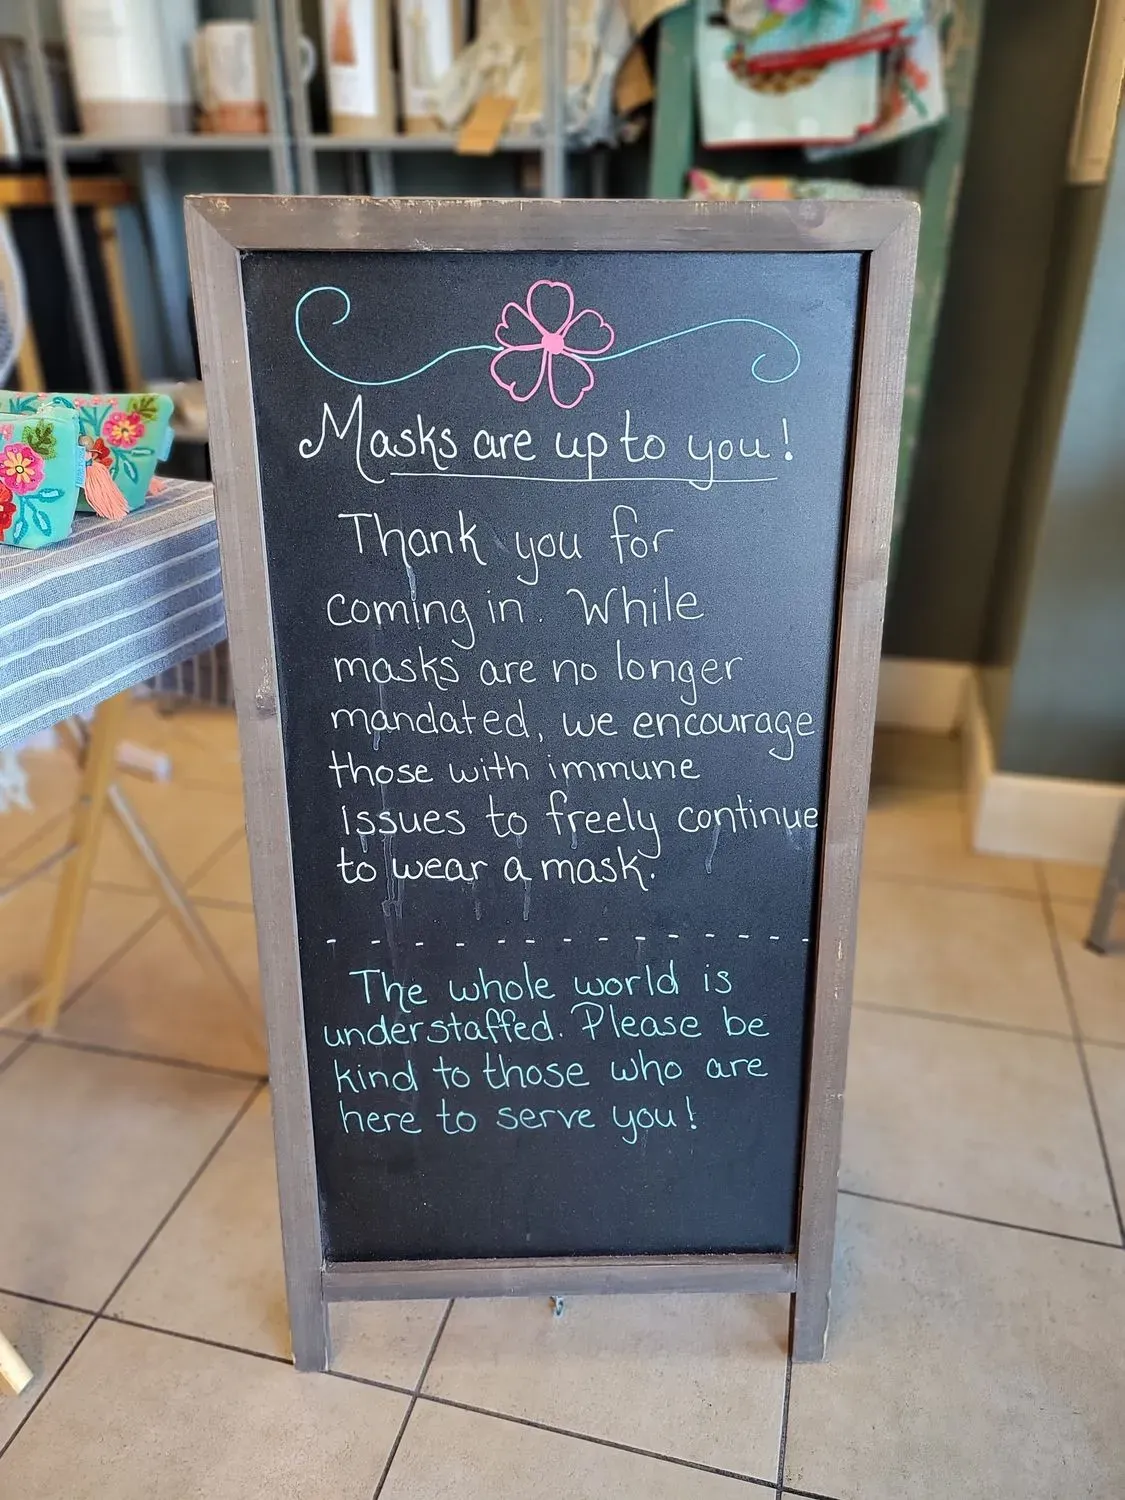 Masks are up to you!
Thank you for
coming in. While
masks are no longer
mandated, we encourage
those with immune
Issues to freely continue
to wear a mask.
- - - - - - - - - - - - -
The whole world is
understaffed. Please be
kind to those who are
here to serve you!